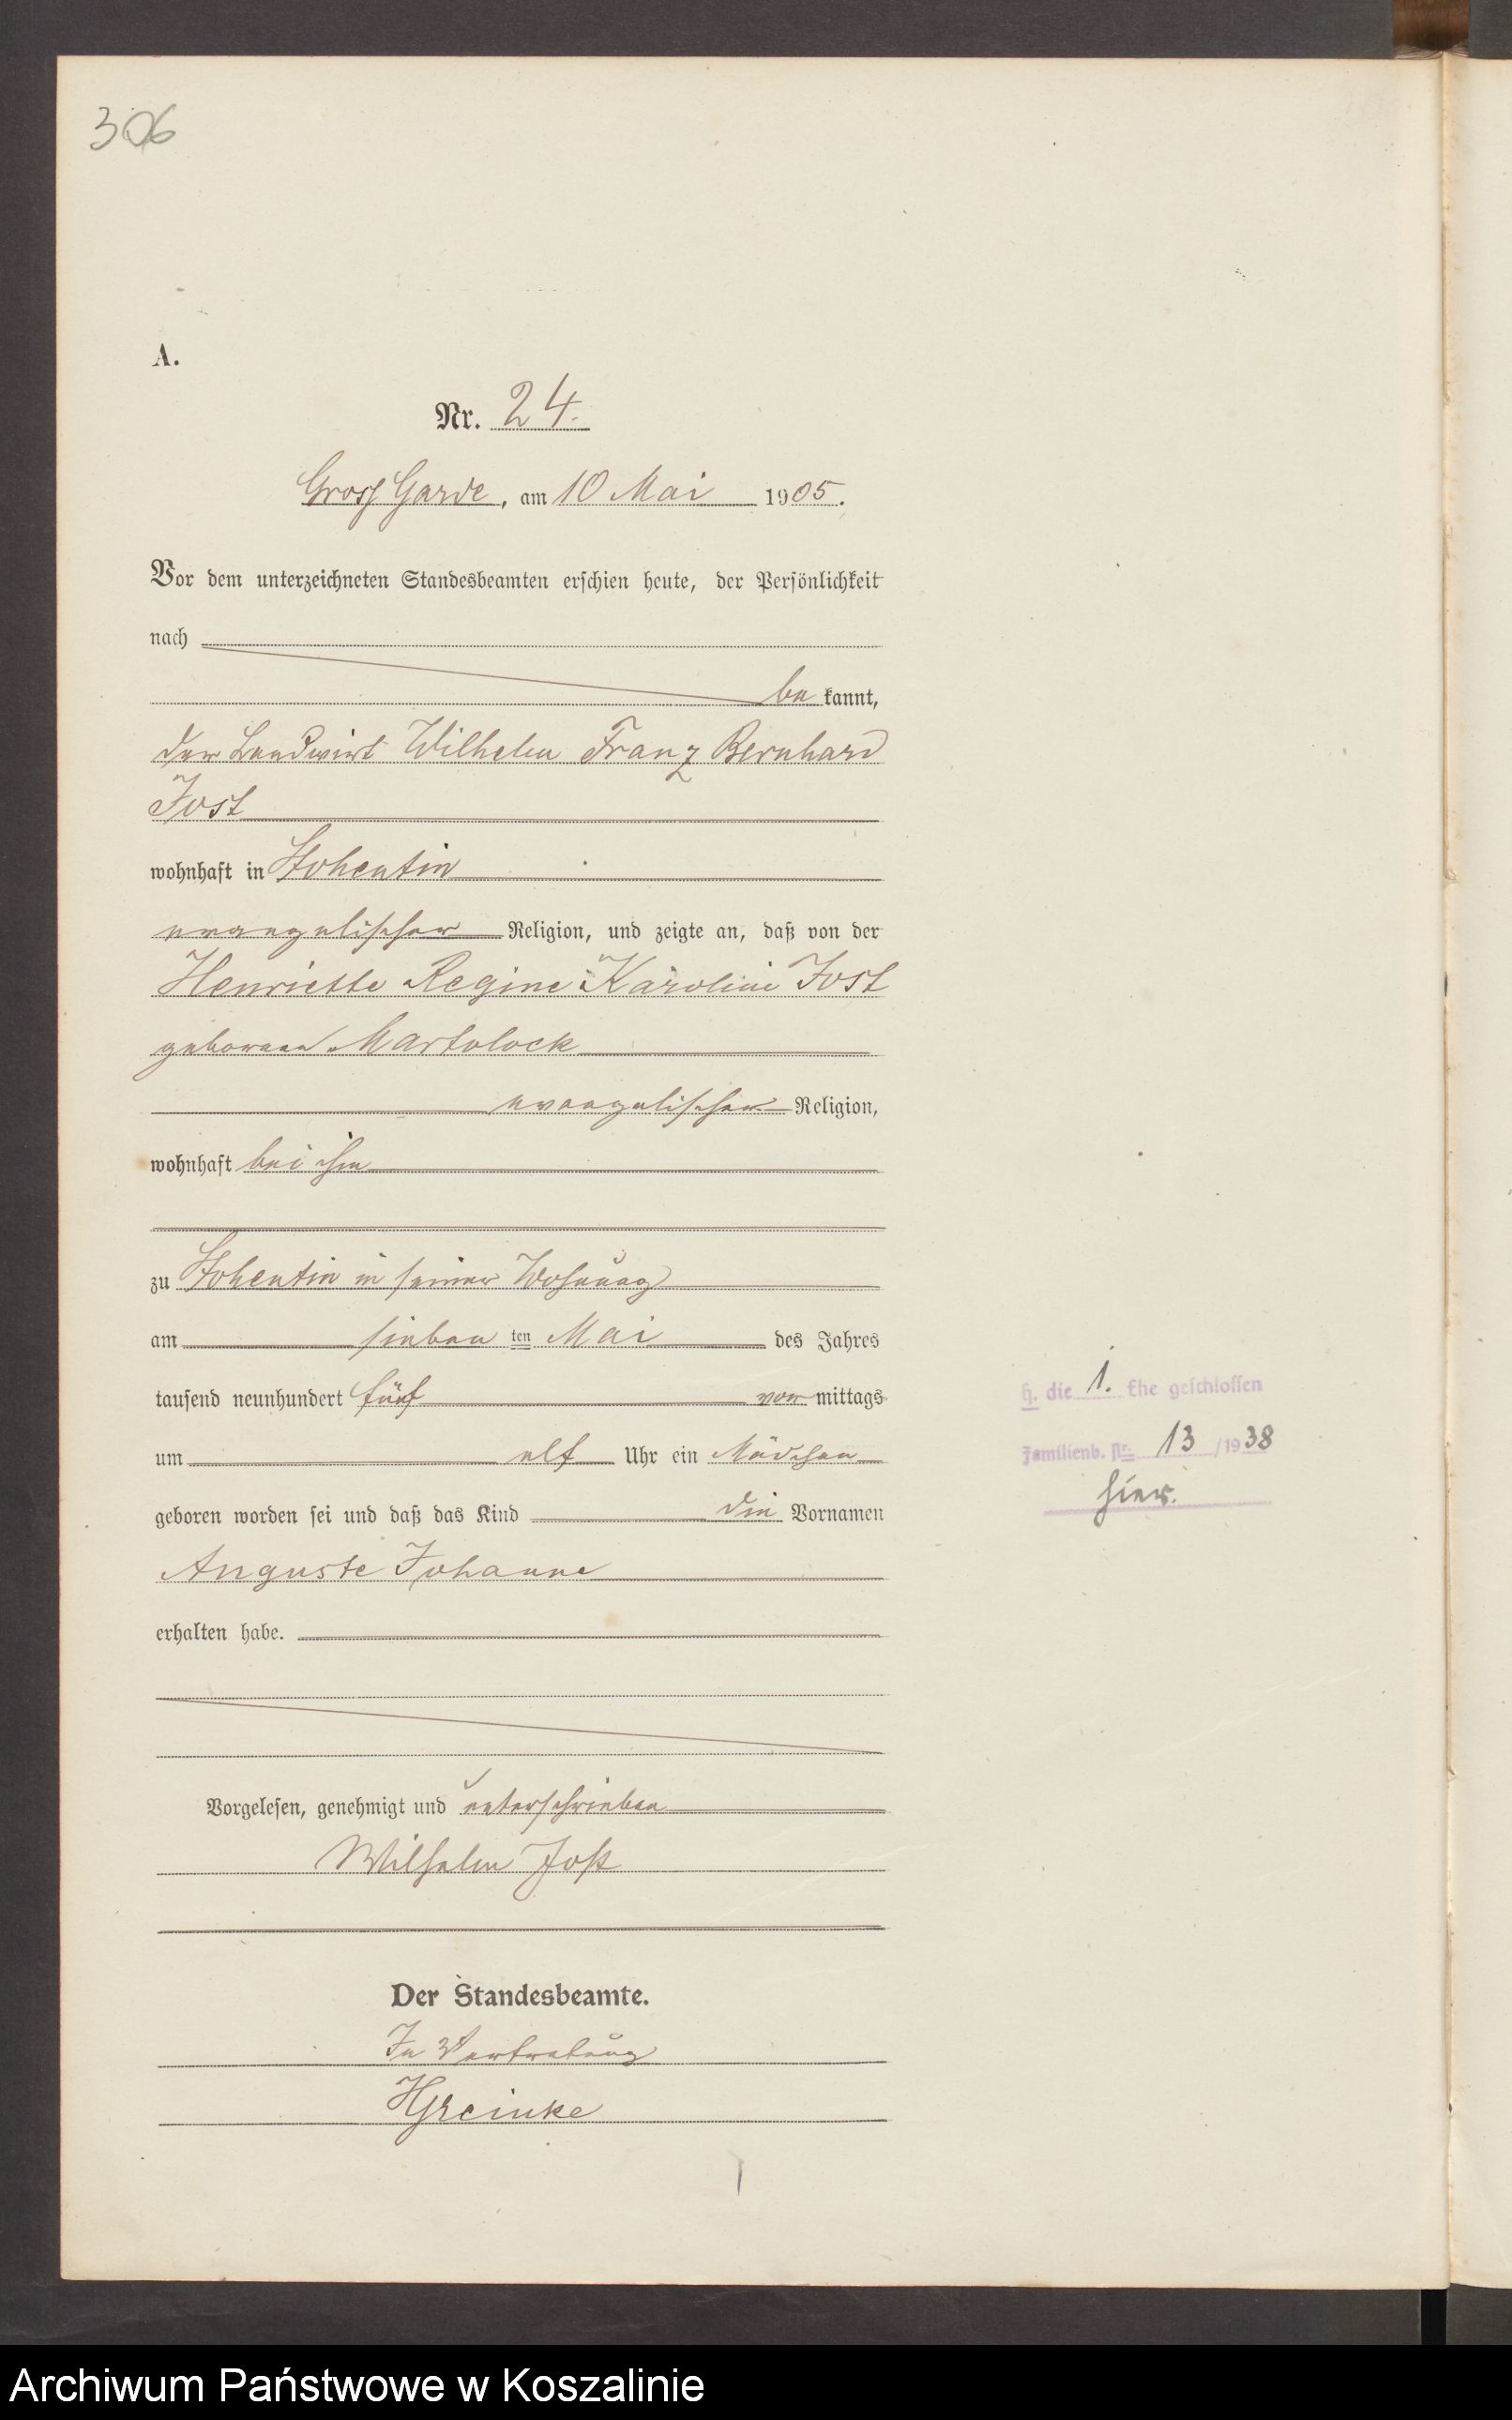 306
A.
Nr. 24.
Gross Garde, am 10 Mai 1905.
Vor dem unterzeichneten Standesbeamten erschien heute, der Persönlichkeit
nach
be kannt,
der Landwirt Wilhelm Franz Bernhard
Jost
wohnhaft in Stohentin
evangelischer Religion, und zeigte an, daß von der
Henriette Regine Karoline Jost
geborenen Martolock
evangelischer Religion,
wohnhaft bei ihm
zu Stohentin in seiner Wohnung
am sieben ten Mai des Jahres
tausend neunhundert fünf vor mittags
um elf Uhr ein Mädchen
geboren worden sei und daß das Kind die Vornamen
Auguste Johanne
erhalten habe.
Vorgelesen, genehmigt und unterschrieben
Wilhelm Jost
Der Standesbeamte.
In Vertretung
HGreinke
h. die 1. Ehe geschlossen
Familienb. Nr. 13 /1938
hier.
Archiwum Państwowe w Koszalinie